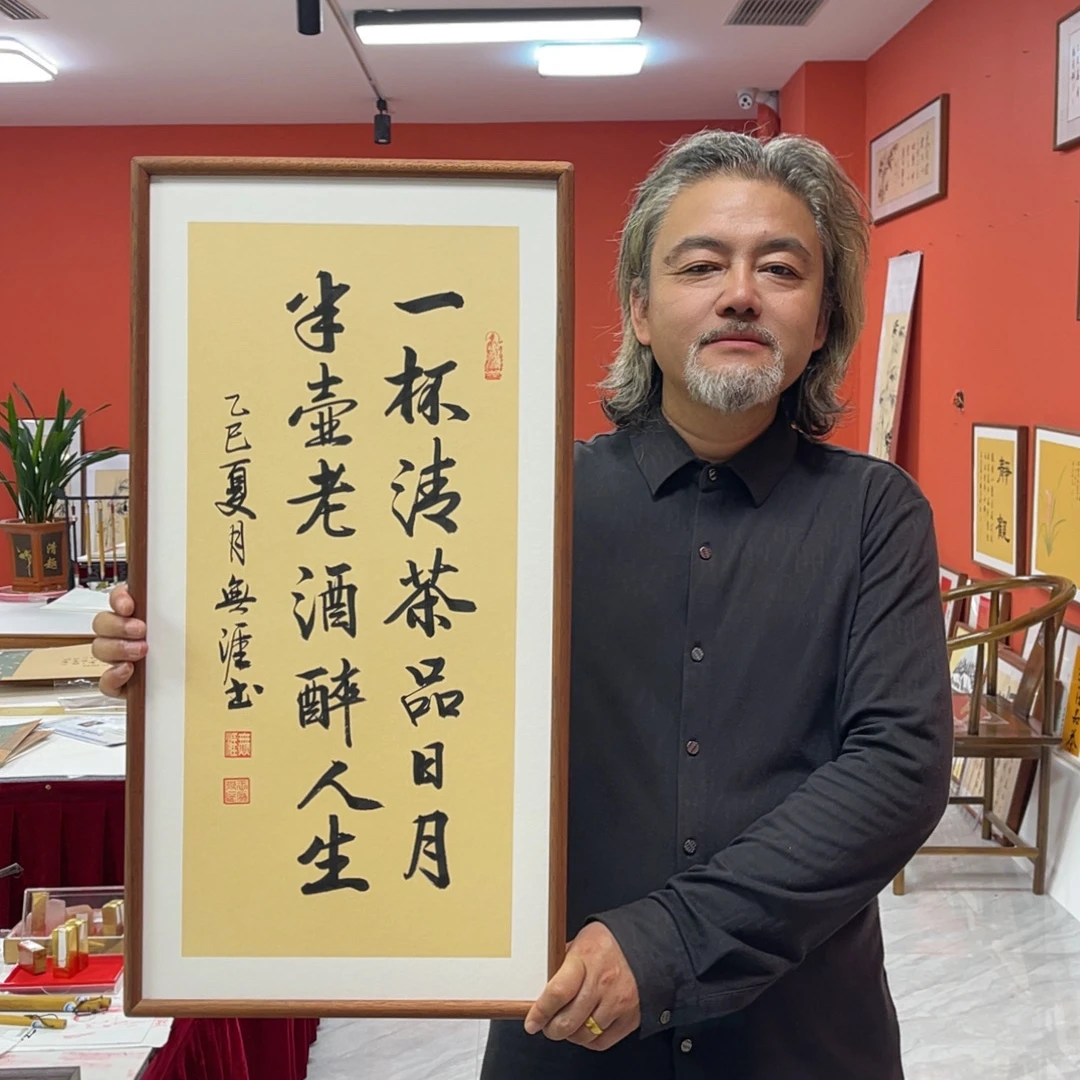 一杯清茶品日月
半壶老酒醉人生
乙巳夏月無涯书
靜觀
清趣